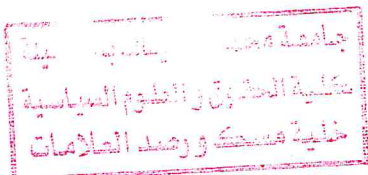 جامعة محمد
كلية الحقوق و العلوم السياسية
خلية مسك و رصد العلامات